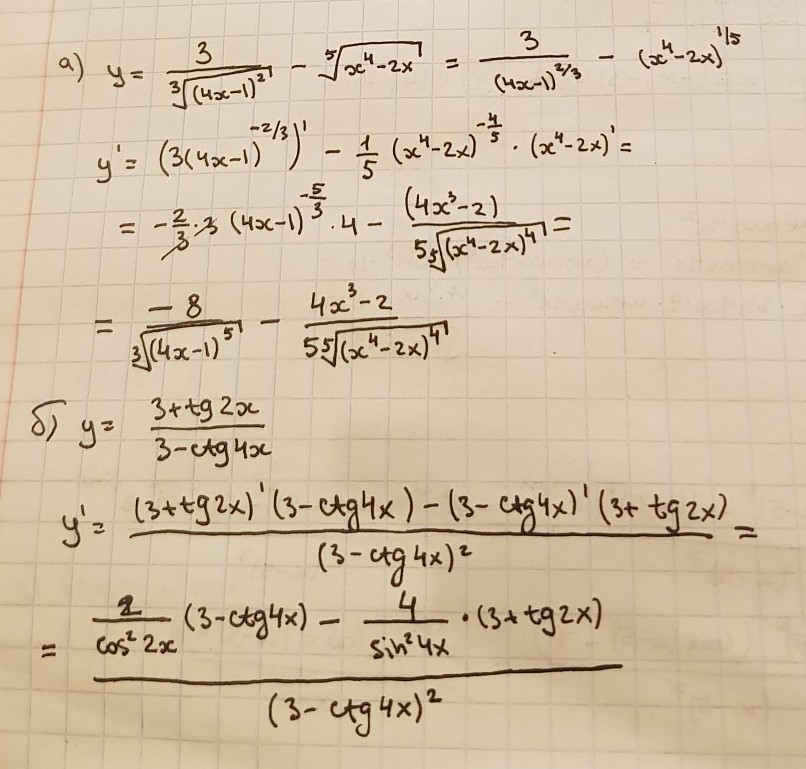 а) y = 3/∛((4x-1)²) - ⁵√(x⁴-2x) = 3/(4x-1)^(2/3) - (x⁴-2x)^(1/5)
y' = (3(4x-1)^(-2/3))' - 1/5 (x⁴-2x)^(-4/5) · (x⁴-2x)' =
= -2/3 · 3 (4x-1)^(-5/3) · 4 - (4x³-2)/(5 ⁵√((x⁴-2x)⁴)) =
= -8/∛((4x-1)⁵) - (4x³-2)/(5 ⁵√((x⁴-2x)⁴))
б) y = (3+tg2x)/(3-ctg4x)
y' = ((3+tg2x)'(3-ctg4x) - (3-ctg4x)'(3+tg2x))/(3-ctg4x)² =
= (2/cos²2x (3-ctg4x) - 4/sin²4x · (3+tg2x))/(3-ctg4x)²